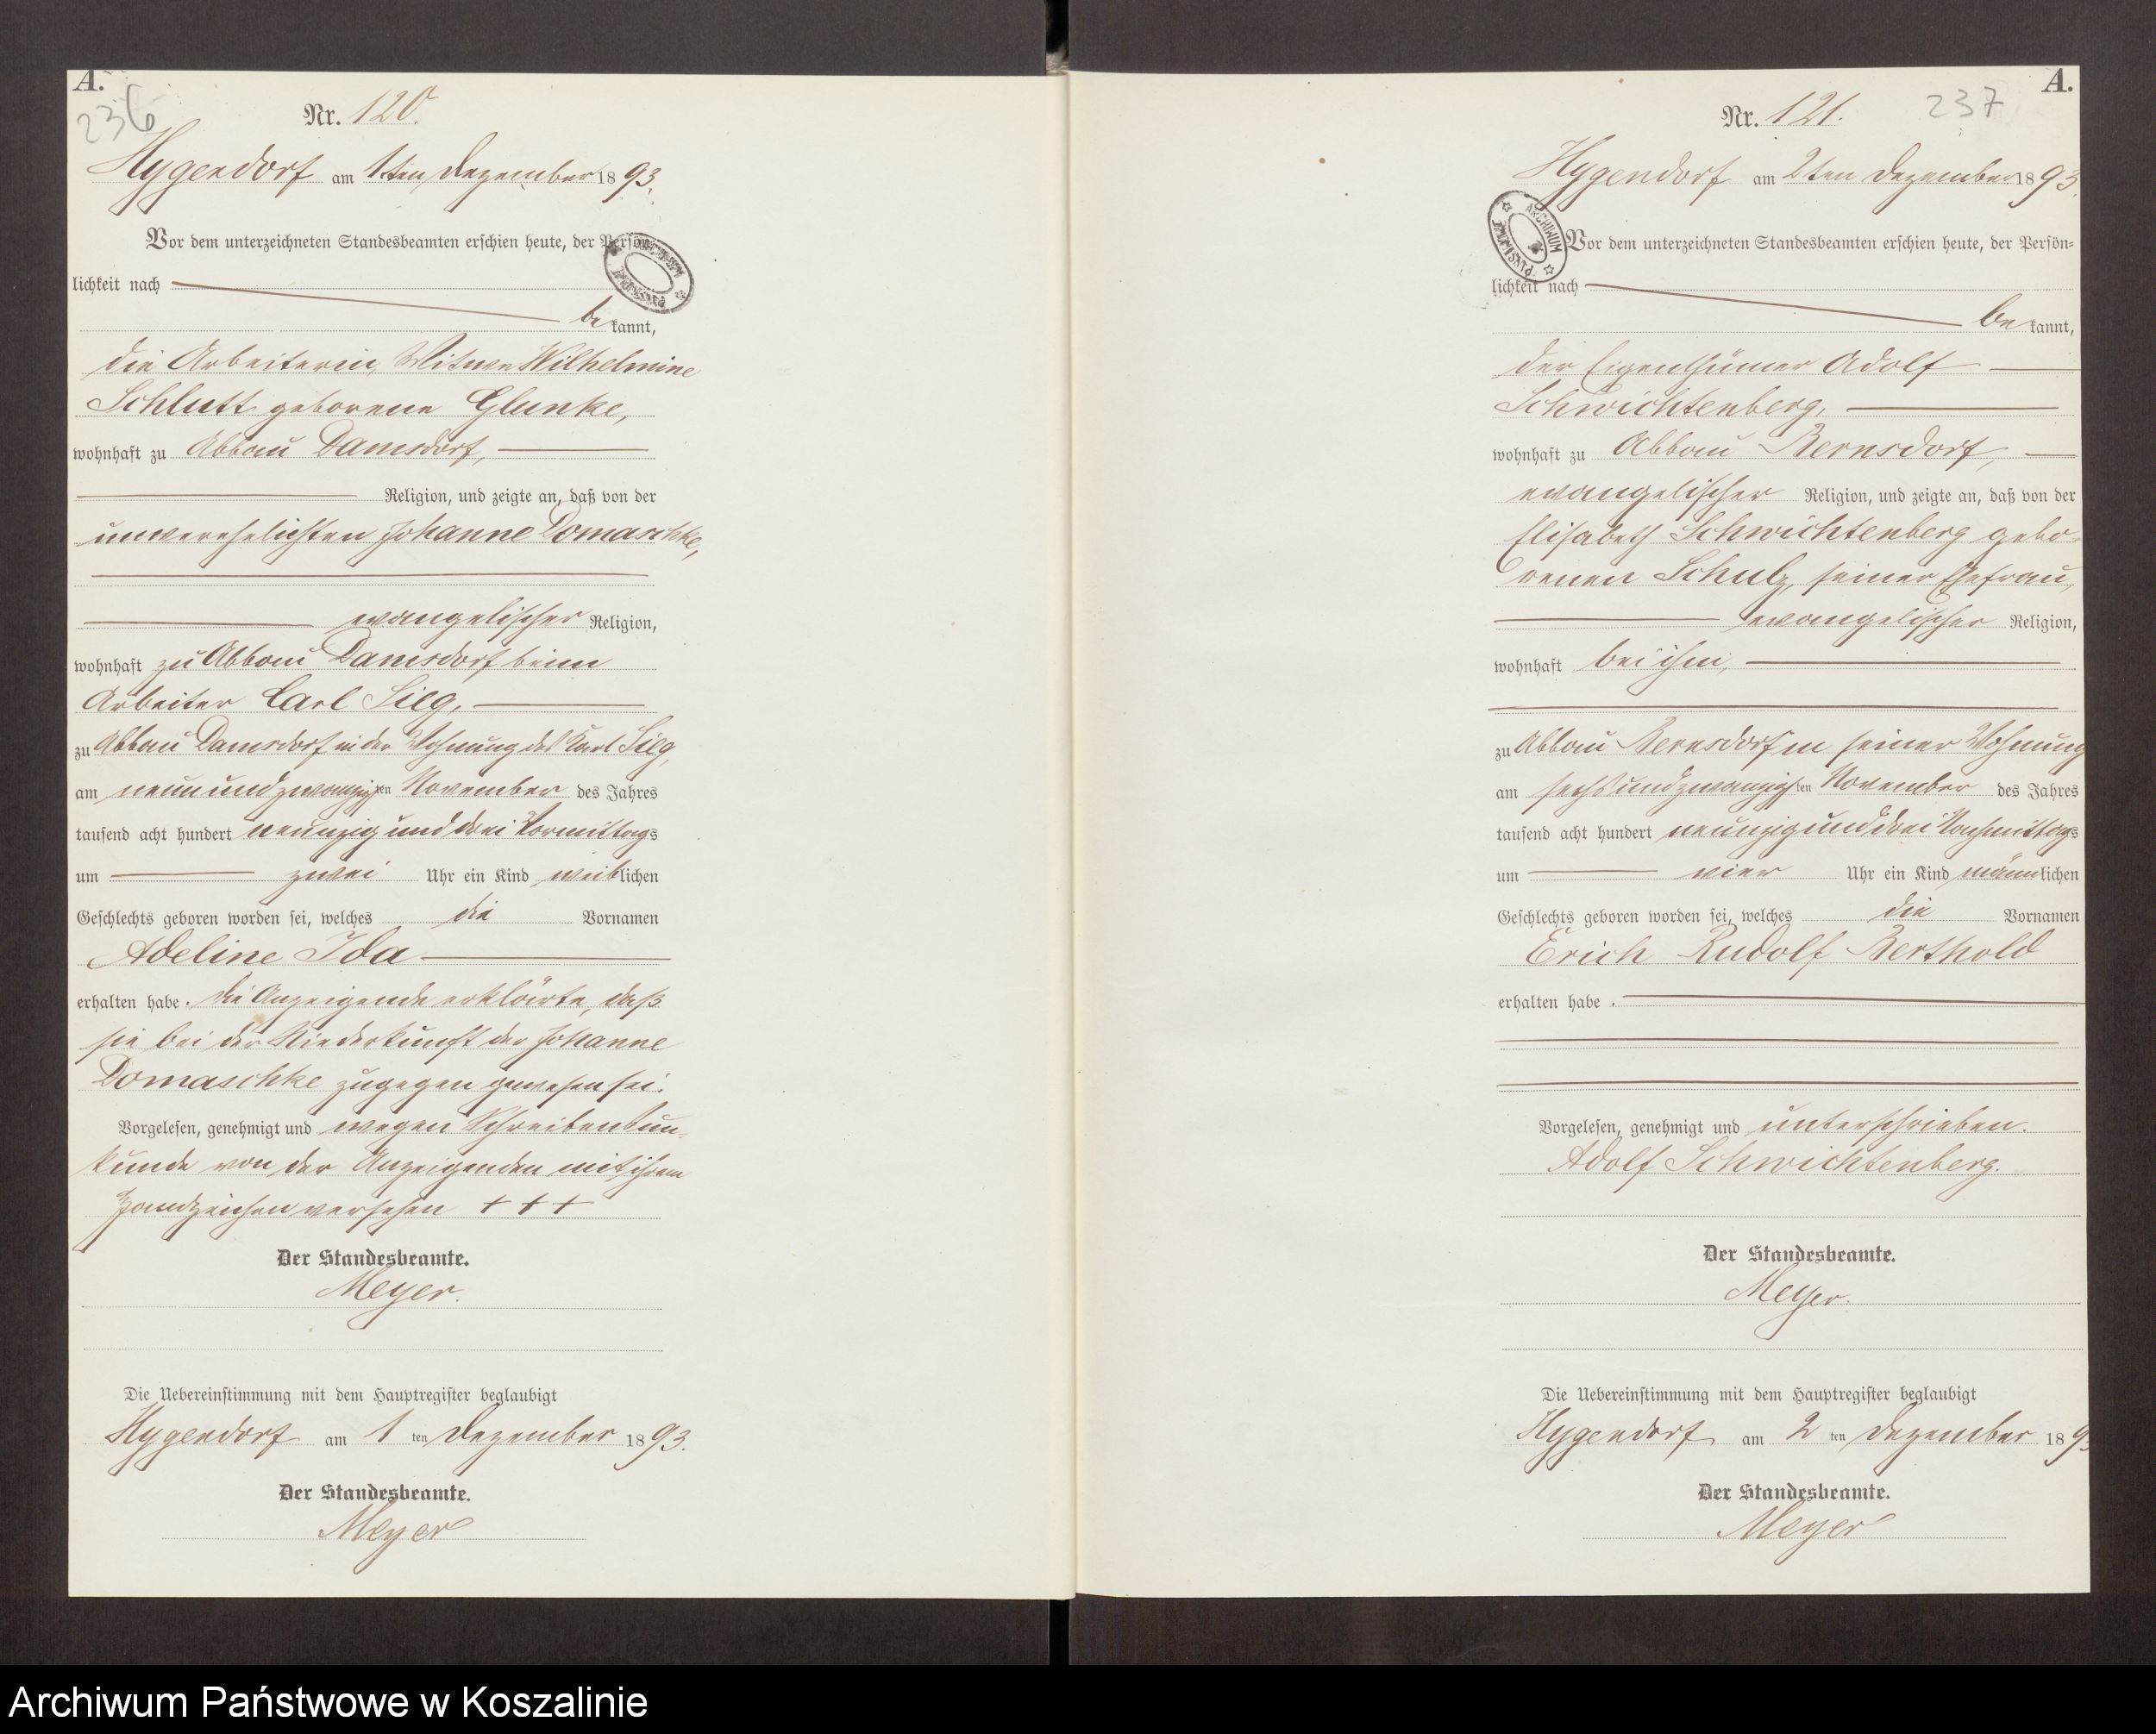 A.
236
Nr. 120.
Hygendorf am 1ten Dezember 1893.
Vor dem unterzeichneten Standesbeamten erschien heute, der Persön-
lichkeit nach
bekannt,
die Arbeiterin, Witwe Wilhelmine
Schlutt geborene Glunke,
wohnhaft zu Abbau Damsdorf,
Religion, und zeigte an, daß von der
unverehelichten Johanne Domaschke,
evangelischer Religion,
wohnhaft zu Abbau Damsdorf beim
Arbeiter Carl Sieg,
zu Abbau Damsdorf in der Wohnung des Karl Sieg,
am neunundzwanzigsten November des Jahres
tausend acht hundert neunzig und drei Vormittags
um zwei Uhr ein Kind weiblichen
Geschlechts geboren worden sei, welches die Vornamen
Adeline Ida
erhalten habe. Die Anzeigende erklärte, daß
sie bei der Niederkunft der Johanne
Domaschke zugegen gewesen sei.
Vorgelesen, genehmigt und wegen Schreibensun-
kunde von der Anzeigenden mit ihrem
Handzeichen versehen + + +
Der Standesbeamte.
Meyer.
Die Uebereinstimmung mit dem Hauptregister beglaubigt
Hygendorf am 1 ten Dezember 1893.
Der Standesbeamte.
Meyer
A.
237
Nr. 121.
Hygendorf am 2ten Dezember 1893.
ARCHIWUM
Vor dem unterzeichneten Standesbeamten erschien heute, der Persön-
lichkeit nach
bekannt,
der Eigenthümer Adolf
Schwichtenberg,
wohnhaft zu Abbau Bernsdorf,
evangelischer Religion, und zeigte an, daß von der
Elisabeth Schwichtenberg gebo-
renen Schulz, seiner Ehefrau,
evangelischer Religion,
wohnhaft bei ihm,
zu Abbau Bernsdorf in seiner Wohnung
am sechsundzwanzigsten November des Jahres
tausend acht hundert neunzig und drei Nachmittags
um vier Uhr ein Kind männlichen
Geschlechts geboren worden sei, welches die Vornamen
Erich Rudolf Berthold
erhalten habe.
Vorgelesen, genehmigt und unterschrieben.
Adolf Schwichtenberg.
Der Standesbeamte.
Meyer.
Die Uebereinstimmung mit dem Hauptregister beglaubigt
Hygendorf am 2 ten Dezember 1893
Der Standesbeamte.
Meyer
Archiwum Państwowe w Koszalinie